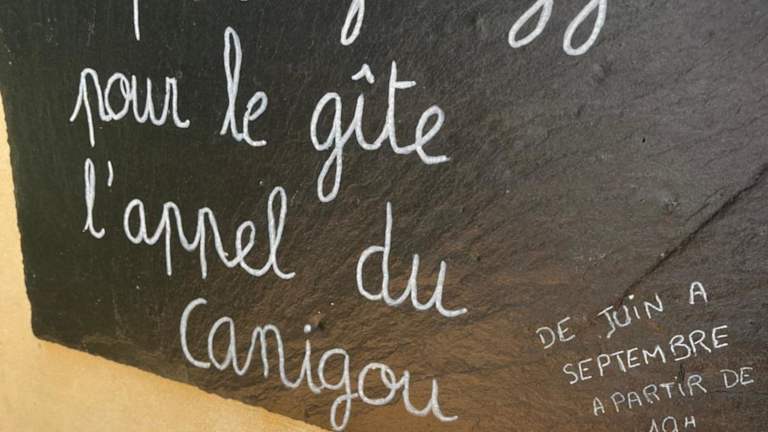 pour le gîte
l'appel du
canigou
DE JUIN A
SEPTEMBRE
A PARTIR DE
19H